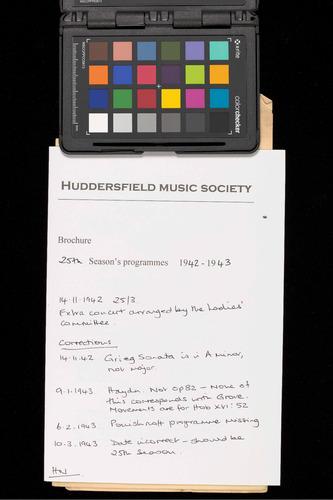 x-rite
colorchecker
HUDDERSFIELD MUSIC SOCIETY
Brochure
25th Season's programmes 1942-1943
14.11.1942 25/3
Extra concert arranged by the Ladies'
Committee.
Corrections
14.11.42 Grieg Sonata is in A minor,
not major
9.1.1943 Haydn. Not op82 - None of
this corresponds with Grove.
Movements are for Hob XVI:52
6.2.1943 Pouishnoff programme missing
10.3.1943 Date incorrect - should be
25th Season.
HW